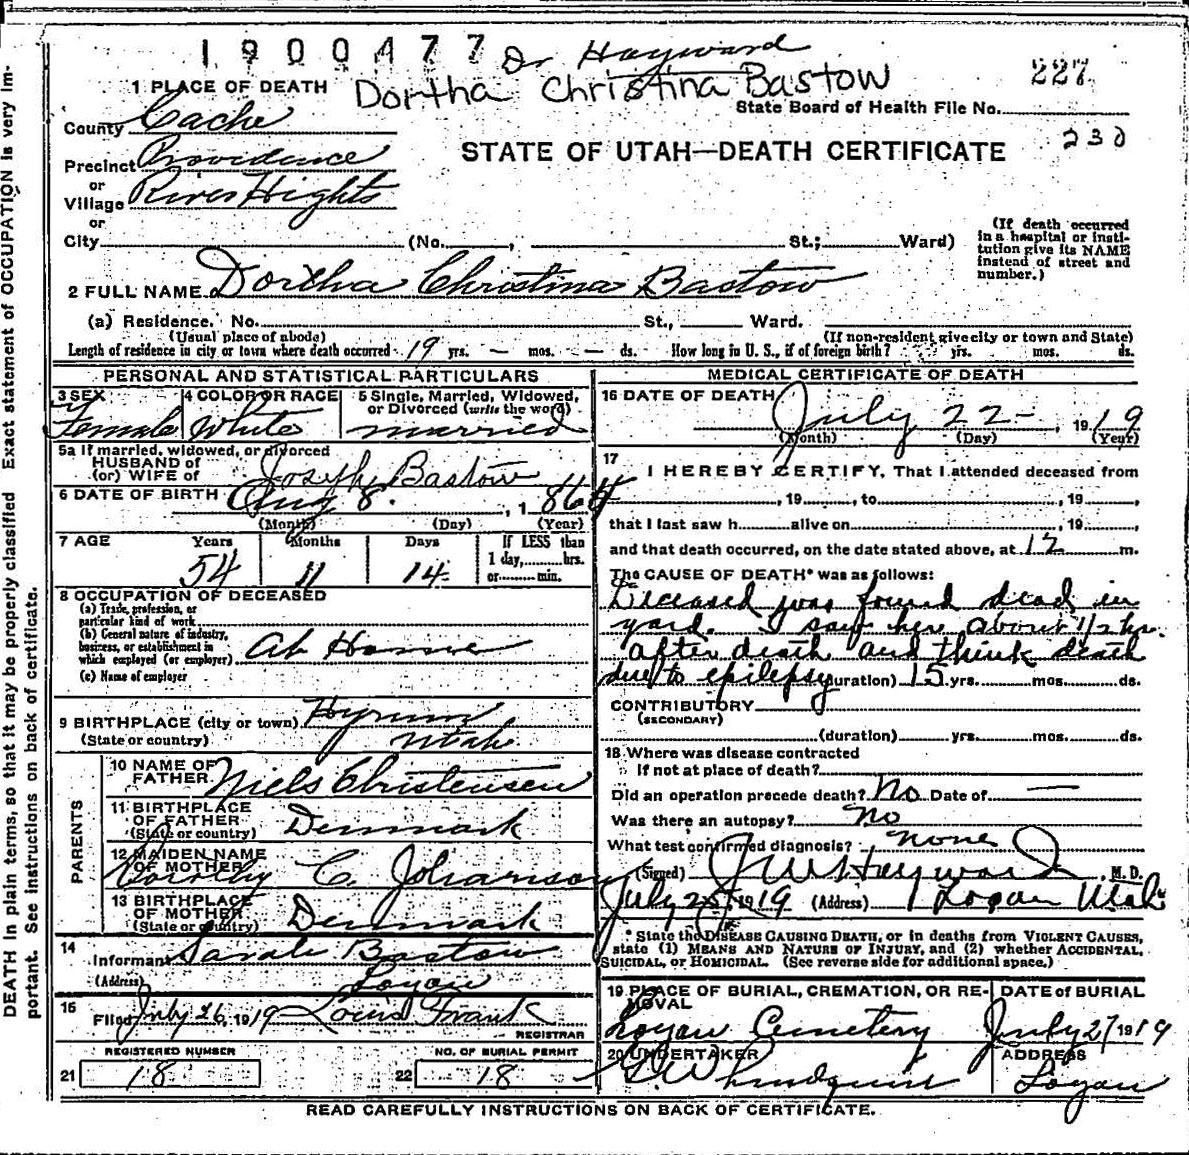 1900477 Dr Hayward
Dortha Christina Bastow
227
State Board of Health File No.
230
1 PLACE OF DEATH
County Cache
STATE OF UTAH—DEATH CERTIFICATE
Precinct Providence
or
Village River Hights
or
City (No. , St.; Ward)
(If death occurred
in a hospital or insti-
tution give its NAME
instead of street and
number.)
2 FULL NAME Dortha Christina Bastow
(a) Residence. No. St., Ward.
(Usual place of abode) (If non-resident give city or town and State)
Length of residence in city or town where death occurred 19 yrs. — mos. — ds. How long in U. S., if of foreign birth? yrs. mos. ds.
PERSONAL AND STATISTICAL PARTICULARS
3 SEX 4 COLOR OR RACE 5 Single, Married, Widowed,
or Divorced (write the word)
Female White married
5a If married, widowed, or divorced
HUSBAND of
(or) WIFE of Joseph Bastow
6 DATE OF BIRTH Aug 8. , 1864
(Month) (Day) (Year)
7 AGE Years Months Days If LESS than
1 day, hrs.
or min.
54 11 14
8 OCCUPATION OF DECEASED
(a) Trade, profession, or
particular kind of work
(b) General nature of industry,
business, or establishment in
which employed (or employer) At Home
(c) Name of employer
9 BIRTHPLACE (city or town) Hyrum
(State or country) Utah
PARENTS
10 NAME OF
FATHER Niels Christensen
11 BIRTHPLACE
OF FATHER
(State or country) Denmark
12 MAIDEN NAME
OF MOTHER C. Johanson
13 BIRTHPLACE
OF MOTHER
(State or country) Denmark
14
Informant Sarah Bastow
(Address) Logan
15
Filed July 26, 1919 Louis Frank
REGISTRAR
REGISTERED NUMBER NO. OF BURIAL PERMIT
21 18 22 18
MEDICAL CERTIFICATE OF DEATH
16 DATE OF DEATH
July 22 - , 1919
(Month) (Day) (Year)
17
I HEREBY CERTIFY, That I attended deceased from
, 19 , to , 19 ,
that I last saw h alive on , 19 ,
and that death occurred, on the date stated above, at 12 m.
The CAUSE OF DEATH* was as follows:
Deceased was found dead in
yard. I saw her about 1/2 hr.
after death and think death
due to epilepsy (duration) 15 yrs. mos. ds.
CONTRIBUTORY
(SECONDARY)
(duration) yrs. mos. ds.
18 Where was disease contracted
If not at place of death?
Did an operation precede death? No Date of —
Was there an autopsy? No
What test confirmed diagnosis? none
(Signed) J W Hayward , M. D.
July 25, 1919 (Address) Logan Utah
* State the DISEASE CAUSING DEATH, or in deaths from VIOLENT CAUSES,
state (1) MEANS AND NATURE OF INJURY, and (2) whether ACCIDENTAL,
SUICIDAL, or HOMICIDAL. (See reverse side for additional space.)
19 PLACE OF BURIAL, CREMATION, OR RE-
MOVAL
DATE of BURIAL
Logan Cemetery July 27 1919
20 UNDERTAKER ADDRESS
Lundquist Logan
READ CAREFULLY INSTRUCTIONS ON BACK OF CERTIFICATE.
DEATH in plain terms, so that it may be properly classified Exact statement of OCCUPATION is very im-
portant. See instructions on back of certificate.